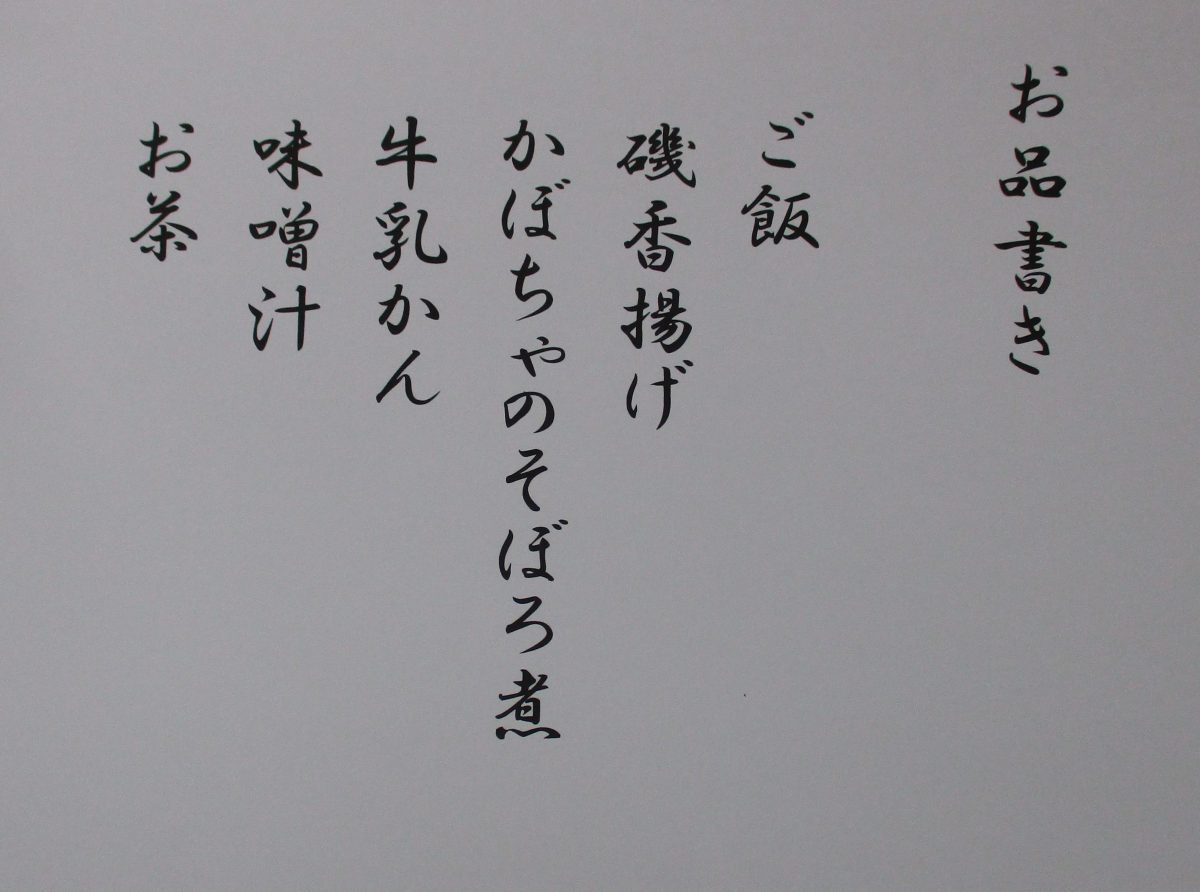 お品書き
ご飯
磯香揚げ
かぼちゃのそぼろ煮
牛乳かん
味噌汁
お茶